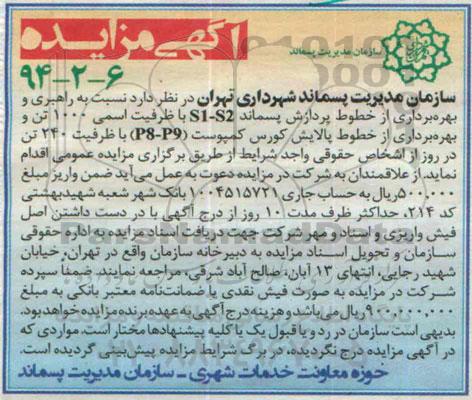 آگهی مزایده
سازمان مدیریت پسماند
۹۴-۲-۶
سازمان مدیریت پسماند شهرداری تهران در نظر دارد نسبت به راهبری و
بهره‌برداری از خطوط پردازش پسماند S1-S2 با ظرفیت اسمی ۱۰۰۰ تن و
بهره‌برداری از خطوط پالایش کورس کمپوست (P8-P9) با ظرفیت ۲۴۰ تن
در روز از اشخاص حقوقی واجد شرایط از طریق برگزاری مزایده عمومی اقدام
نماید. از علاقمندان به شرکت در مزایده دعوت به عمل می‌آید ضمن واریز مبلغ
۵۰۰.۰۰۰ ریال به حساب جاری ۱۰۰۴۵۱۵۷۲۱ بانک شهر شعبه شهید بهشتی
کد ۲۱۴، حداکثر ظرف مدت ۱۰ روز از درج آگهی با در دست داشتن اصل
فیش واریزی و مهر شرکت جهت دریافت اسناد مزایده به اداره حقوقی
سازمان و تحویل اسناد مزایده به دبیرخانه سازمان واقع در تهران، خیابان
شهید رجایی، انتهای ۱۳ آبان، صالح آباد شرقی، مراجعه نمایند. ضمناً سپرده
شرکت در مزایده به صورت فیش نقدی یا ضمانت‌نامه معتبر بانکی به مبلغ
ریال می‌باشد و هزینه درج آگهی به عهده برنده مزایده خواهد بود.
بدیهی است سازمان در رد و یا قبول یک یا کلیه پیشنهادها مختار است. مواردی که
در آگهی مزایده درج نگردیده، در برگ شرایط مزایده پیش‌بینی گردیده است.
حوزه معاونت خدمات شهری ـ سازمان مدیریت پسماند